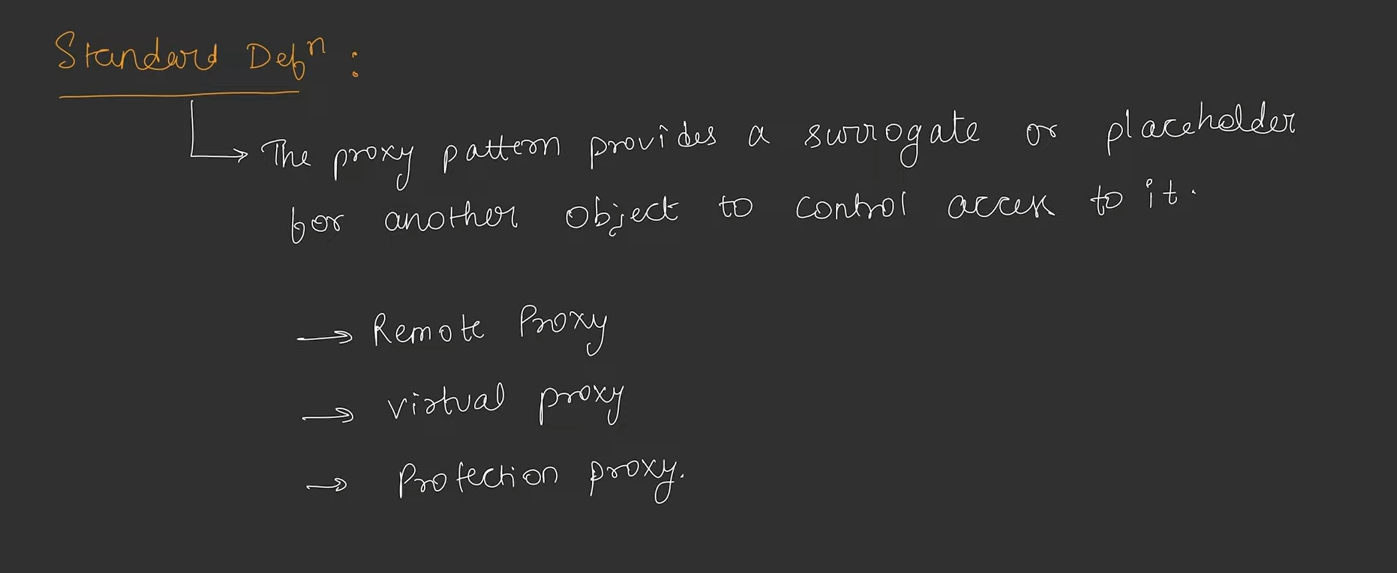 Standard Defⁿ :
The proxy pattern provides a surrogate or placeholder
for another object to control access to it.
→ Remote Proxy
→ virtual proxy
→ Protection proxy.